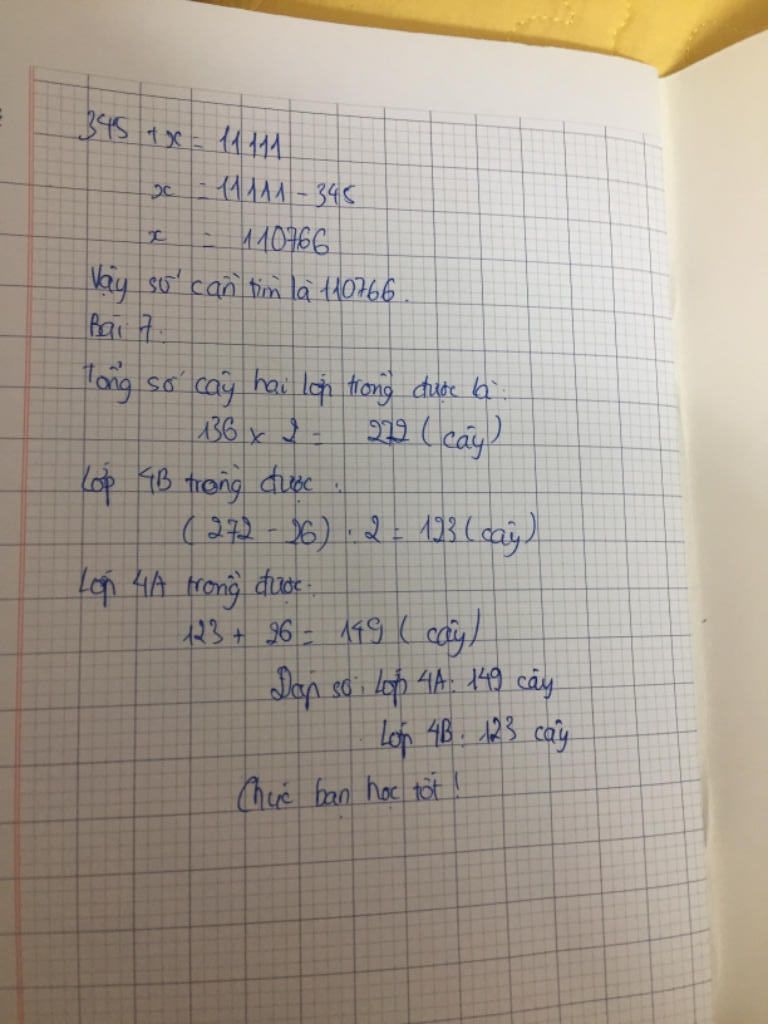 345 + x = 11111
x = 11111 - 345
x = 110766
Vậy số cần tìm là 110766.
Bài 7.
Tổng số cây hai lớp trồng được là:
136 x 2 = 272 (cây)
Lớp 4B trồng được:
(272 - 26) : 2 = 123 (cây)
Lớp 4A trồng được:
123 + 26 = 149 (cây)
Đáp số: Lớp 4A: 149 cây
Lớp 4B: 123 cây
Chúc bạn học tốt!